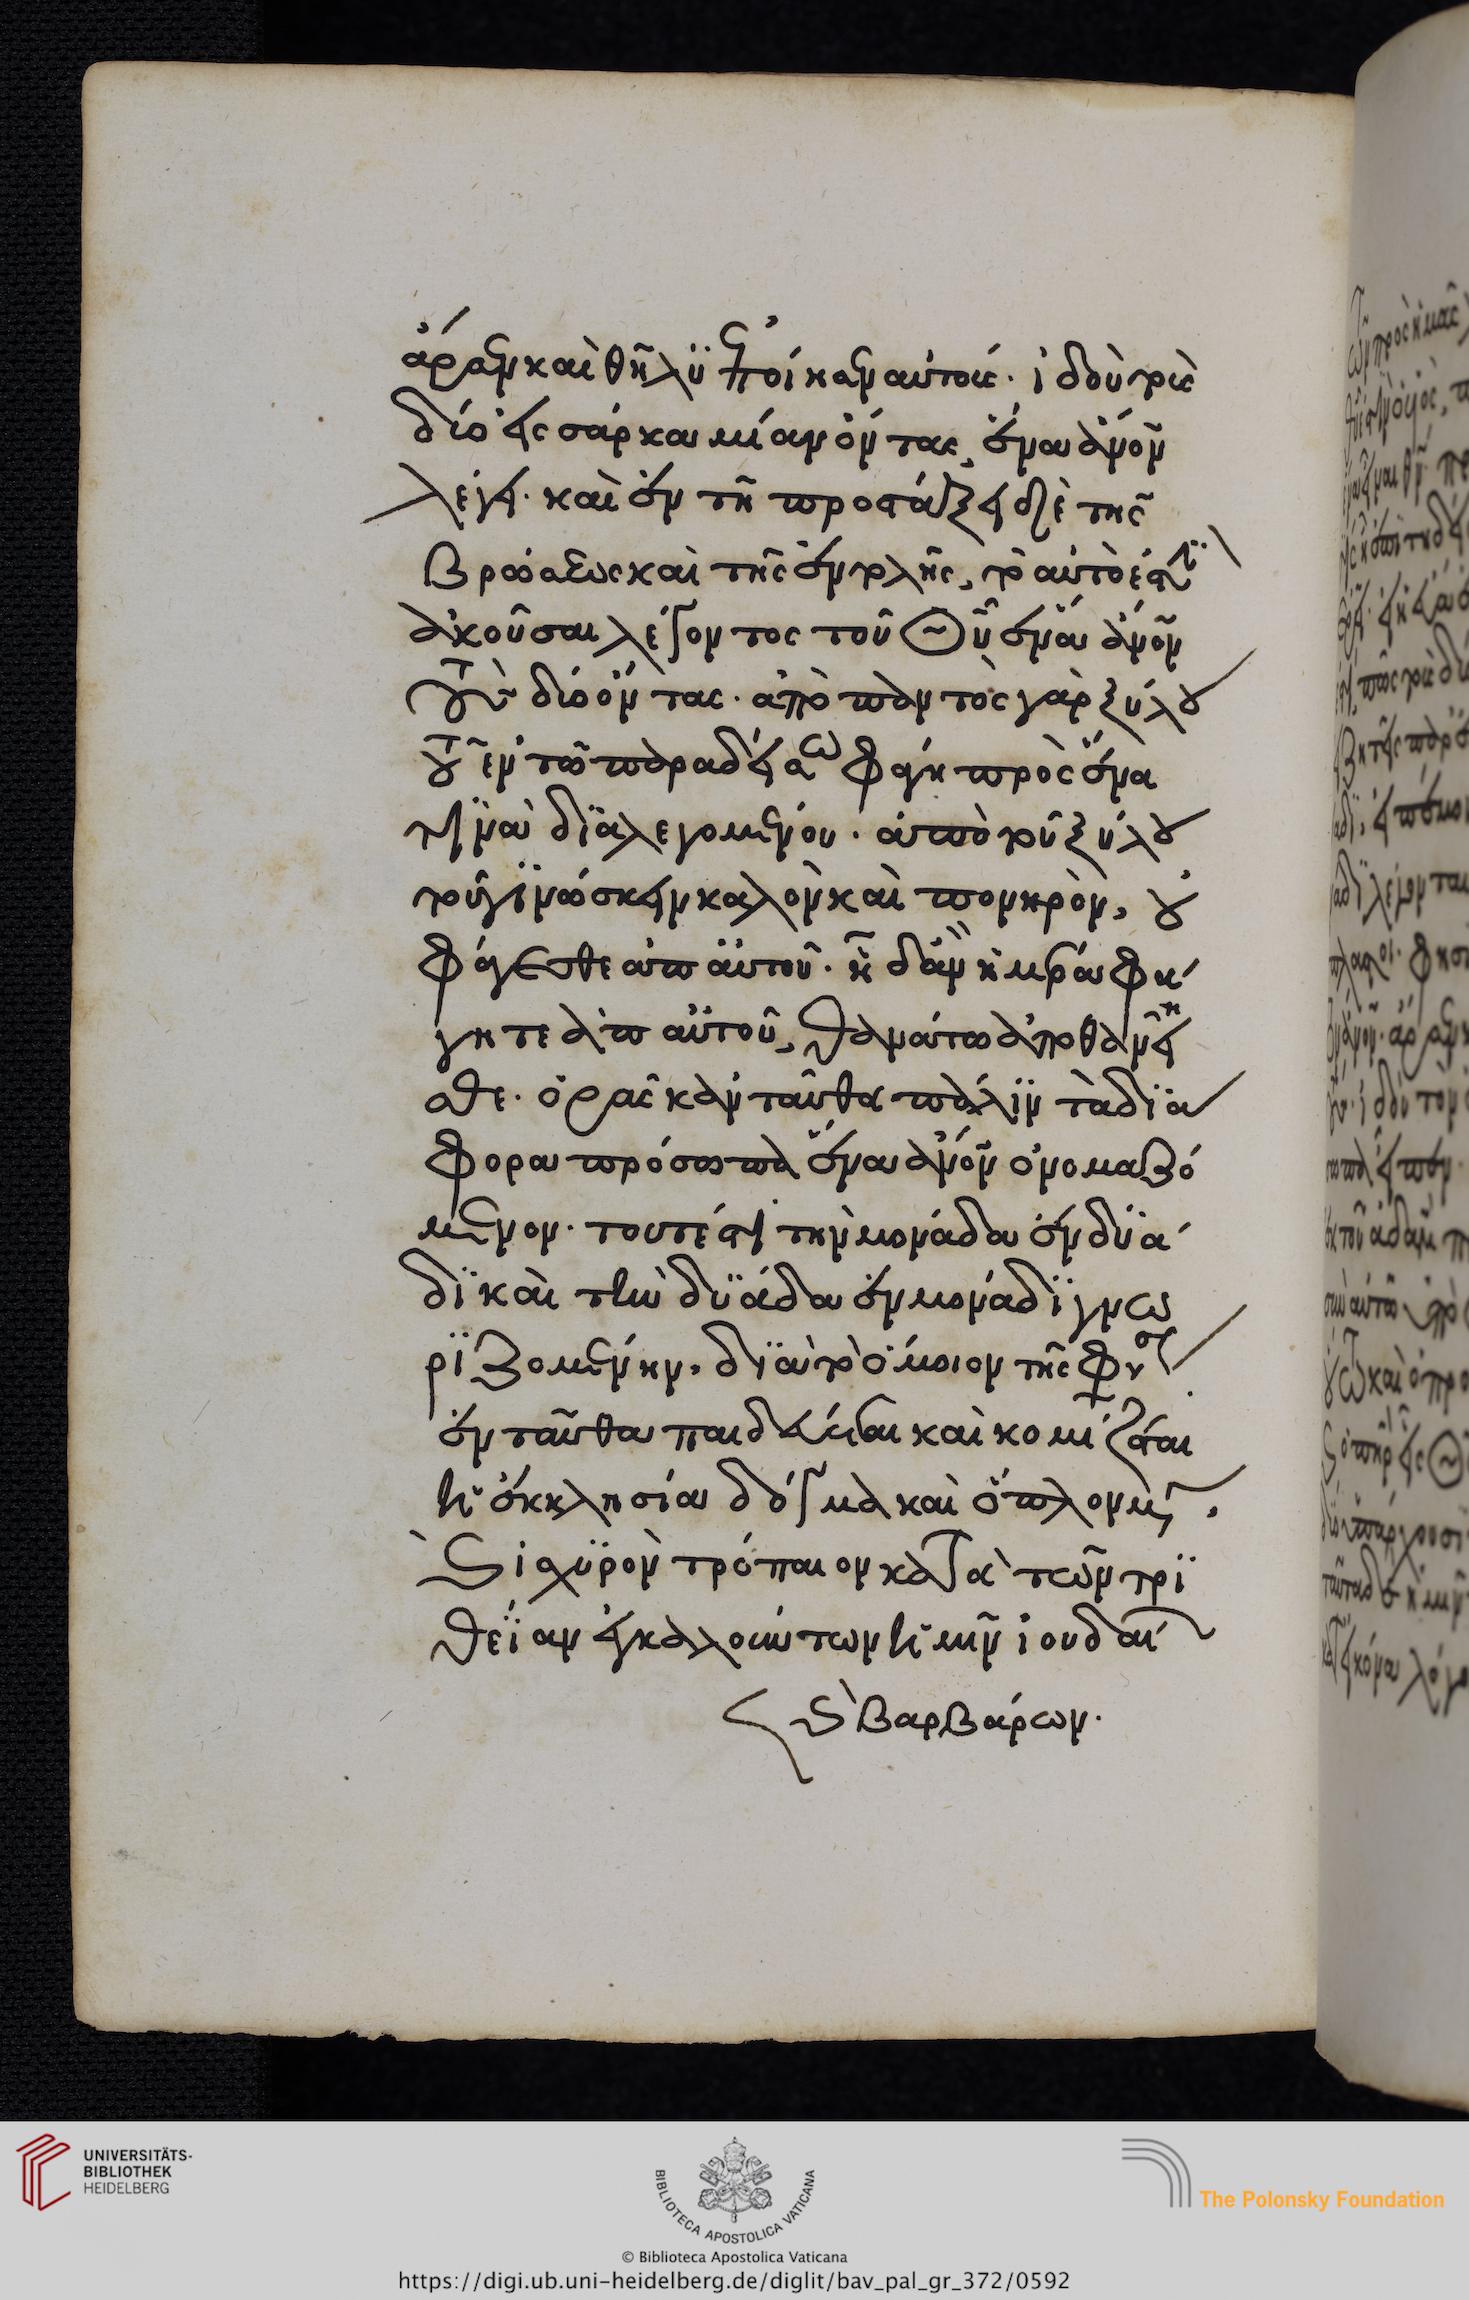 ἄρσεν καὶ θῆλυ ἐποίησεν αὐτούς· ἰδοὺ τοὺς
δύο εἰς σάρκα μίαν ὄντας, ἕνα ἄνον
λέγει· καὶ ἐν τῆ προστάξει δὲ τῆς
βρώσεως καὶ τῆς ἐντολῆς, τὸ αὐτὸ ἐστὶν
ἀκοῦσαι λέγοντος τοῦ Θῦ ἕνα ἄνον
τοὺς δύο ὄντας· ἀπὸ παντὸς γὰρ ξύλου
τοῦ ἐν τῶ παραδείσω φησὶ πρὸς ἕνα
τινὰ διαλεγομένου· ἀπὸ τοῦ ξύλου
τοῦ γινώσκειν καλὸν καὶ πονηρὸν, οὐ
φάγεσθε ἀπ αὐτοῦ· ἧ δἂν ἡμέρα φά
γητε ἀπ αὐτοῦ, θανάτω ἀποθανεῖ
σθε· ὁρᾶς κἀνταῦθα πάλιν τὰ διά
φορα πρόσωπα ἕνα ἄνον ὀνομαζό
μενον· τουτέστι τὴν μονάδα ἐν δυά
δι καὶ τὴν δυάδα ἐν μονάδι γνω
ριζομένην, διὰ τὸ ὅμοιον τῆς φύσεως
ἐνταῦθα παιδεύεσθαι καὶ κομίζεσθαι
ἡ ἐκκλησία δόγμα καὶ ὅπλον μὲν,
καὶ ἰσχυρὸν τρόπαιον κατὰ τῶν τρι
θεΐαν ἐγκαλούντων ἡμῖν ἰουδαί
καὶ βαρβάρων.
UNIVERSITÄTS-
BIBLIOTHEK
HEIDELBERG
BIBLIOTECA APOSTOLICA VATICANA
The Polonsky Foundation
© Biblioteca Apostolica Vaticana
https://digi.ub.uni-heidelberg.de/diglit/bav_pal_gr_372/0592